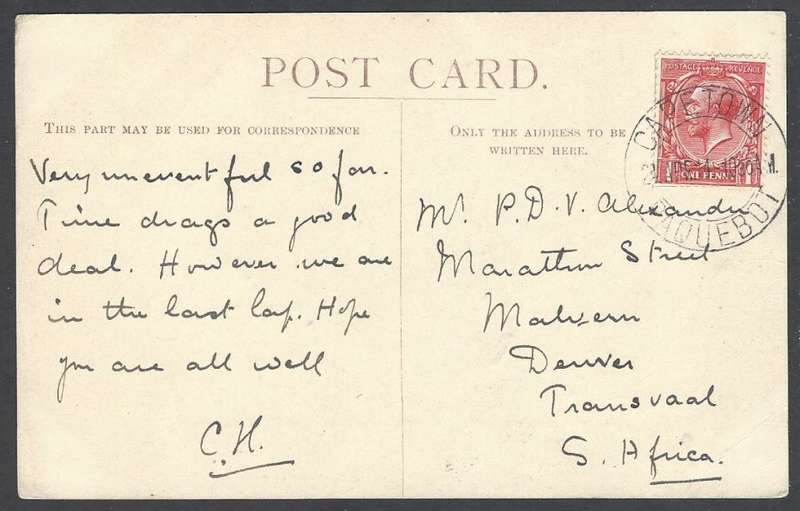 POST CARD.
THIS PART MAY BE USED FOR CORRESPONDENCE
ONLY THE ADDRESS TO BE
WRITTEN HERE.
Very uneventful so far.
Time drags a good
deal. However we are
in the last lap. Hope
you are all well
C.H.
POSTAGE REVENUE
ONE PENNY
CAPE TOWN
PAQUEBOT
Mr. P.D.V. Alexander
Marathon Street
Malvern
Denver
Transvaal
S. Africa.